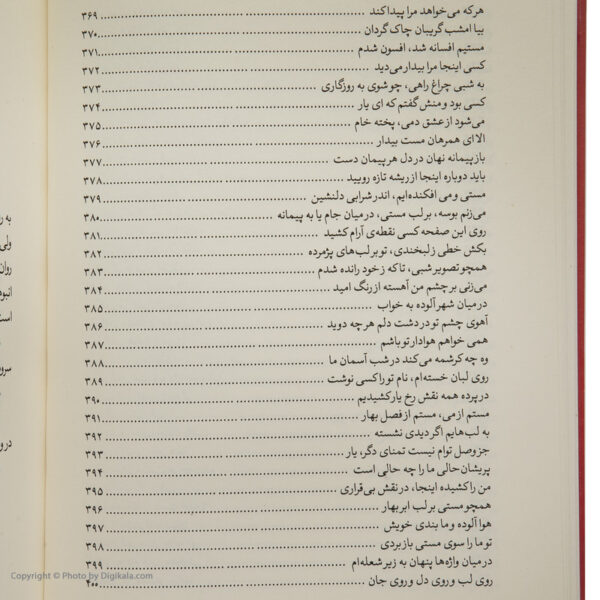 هر که می‌خواهد مرا پیدا کند ۳۶۹
بیا امشب گریبان چاک گردان ۳۷۰
مستیم افسانه شد، افسون شدم ۳۷۱
کسی اینجا مرا بیدار می‌دید ۳۷۲
به شبی چراغ راهی، چو شوی به روزگاری ۳۷۳
کسی بود و منش گفتم که ای یار ۳۷۴
می‌شود از عشق دمی، پخته خام ۳۷۵
الا ای همرهان مست بیدار ۳۷۶
باز پیمانه نهان در دل هر پیمان دست ۳۷۷
باید دوباره اینجا از ریشه تازه رویید ۳۷۸
مستی و می افکنده‌ایم، اندر شرابی دلنشین ۳۷۹
می‌زنم بوسه، بر لب مستی، در میان جام یا به پیمانه ۳۸۰
روی این صفحه کسی نقطه‌ی آرام کشید ۳۸۱
بکش خطی ز لبخندی، تو بر لب‌های پژمرده ۳۸۲
همچو تصویر شبی، تا که ز خود رانده شدم ۳۸۳
می‌زنی بر چشم من آهسته از رنگ امید ۳۸۴
در میان شهر آلوده به خواب ۳۸۵
آهوی چشم تو در دشت دلم هر چه دوید ۳۸۶
همی خواهم هوادار تو باشم ۳۸۷
وه چه کرشمه می‌کند در شب آسمان ما ۳۸۸
روی لبان خسته‌ام، نام تو را کسی نوشت ۳۸۹
در پرده همه نقش رخ یار کشیدیم ۳۹۰
مستم از می، مستم از فصل بهار ۳۹۱
به لب‌هایم اگر دیدی نشسته ۳۹۲
جز وصل توام نیست تمنای دگر، یار ۳۹۳
پریشان حالی ما را چه حالی است ۳۹۴
من را کشیده اینجا، در نقش بی‌قراری ۳۹۵
همچو مستی بر لب ابر بهار ۳۹۶
هوا آلوده و ما بندی خویش ۳۹۷
تو ما را سوی مستی باز بردی ۳۹۸
در میان واژه‌ها پنهان به زیر شعله‌ام ۳۹۹
روی لب و روی دل و روی جان ۴۰۰
به ر
ولی
روان
انبوه
است
سرو
در و
Copyright © Photo by Digikala.com